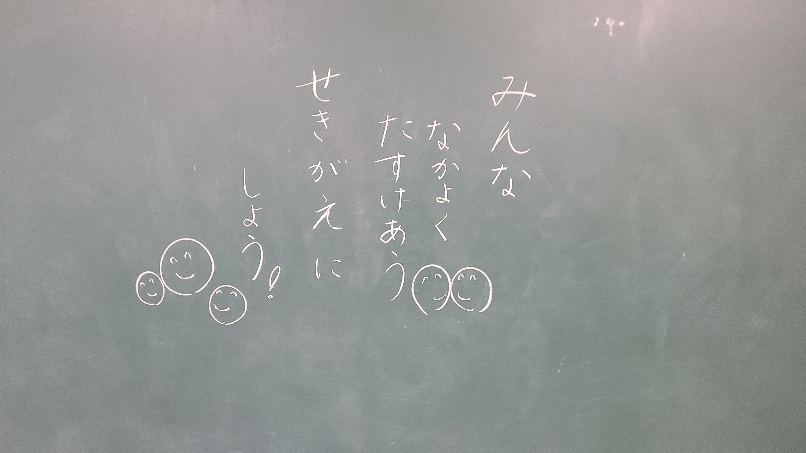 みんな
なかよく
たすけあう
せきがえに
しょう!